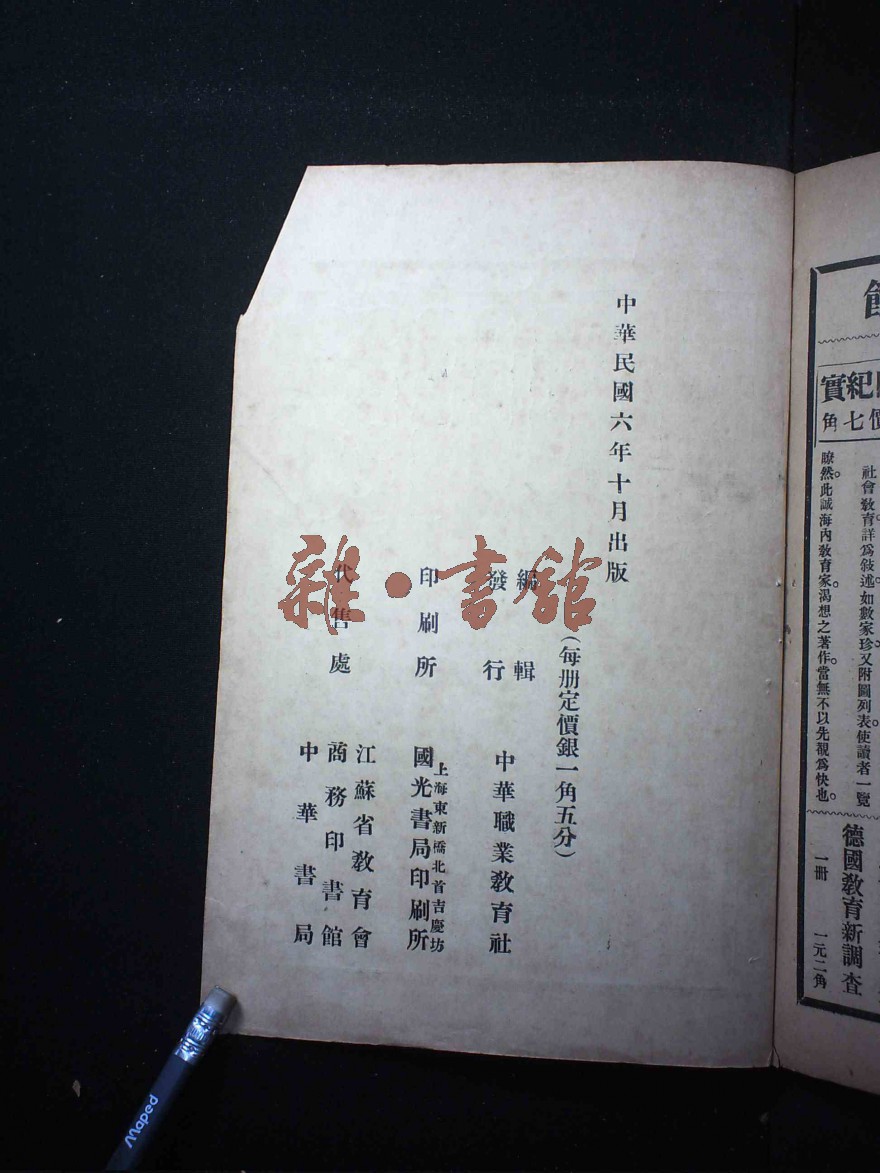 館
實紀
角七價
社會教育詳爲敍述如數家珍又附圖列表使讀者一覽
瞭然此誠海內教育家渴想之著作當無不以先覩爲快也
德國教育新調查
一冊 一元二角
中華民國六年十月出版
(每册定價銀一角五分)
編輯
發行
中華職業教育社
印刷所
上海東新橋北首吉慶坊
國光書局印刷所
代售處
江蘇省教育會
商務印書館
中華書局
雜·書館
Maped